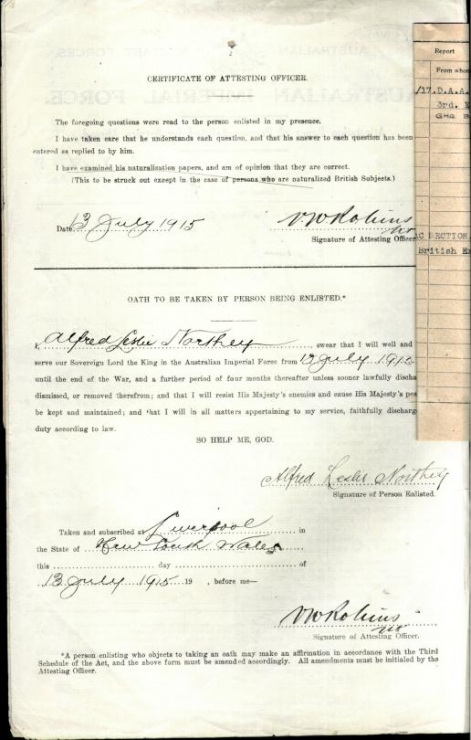 CERTIFICATE OF ATTESTING OFFICER.
The foregoing questions were read to the person enlisted in my presence.
I have taken care that he understands each question, and that his answer to each question has been
entered as replied to by him.
I have examined his naturalization papers, and am of opinion that they are correct.
(This to be struck out except in the case of persons who are naturalized British Subjects.)
Date 13 July 1915
V W Robins
Signature of Attesting Officer
OATH TO BE TAKEN BY PERSON BEING ENLISTED.*
I, Alfred Leslie Northey, swear that I will well and
serve our Sovereign Lord the King in the Australian Imperial Force from 13 July 1915
until the end of the War, and a further period of four months thereafter unless sooner lawfully discha
dismissed, or removed therefrom; and that I will resist His Majesty's enemies and cause His Majesty's pe
be kept and maintained; and that I will in all matters appertaining to my service, faithfully discharg
duty according to law.
SO HELP ME, GOD.
Alfred Leslie Northey
Signature of Person Enlisted.
Taken and subscribed at Liverpool in
the State of New South Wales
this day of
13 July 1915 19 , before me—
V W Robins
Signature of Attesting Officer.
*A person enlisting who objects to taking an oath may make an affirmation in accordance with the Third
Schedule of the Act, and the above form must be amended accordingly. All amendments must be initialed by the
Attesting Officer.
Report
From who
3rd.
GHQ
SECTION
British E